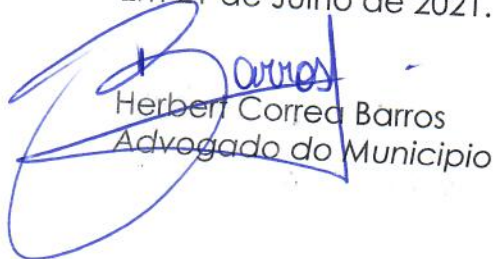 de Julho de 2021.
Barros
Herbert Correa Barros
Advogado do Municipio